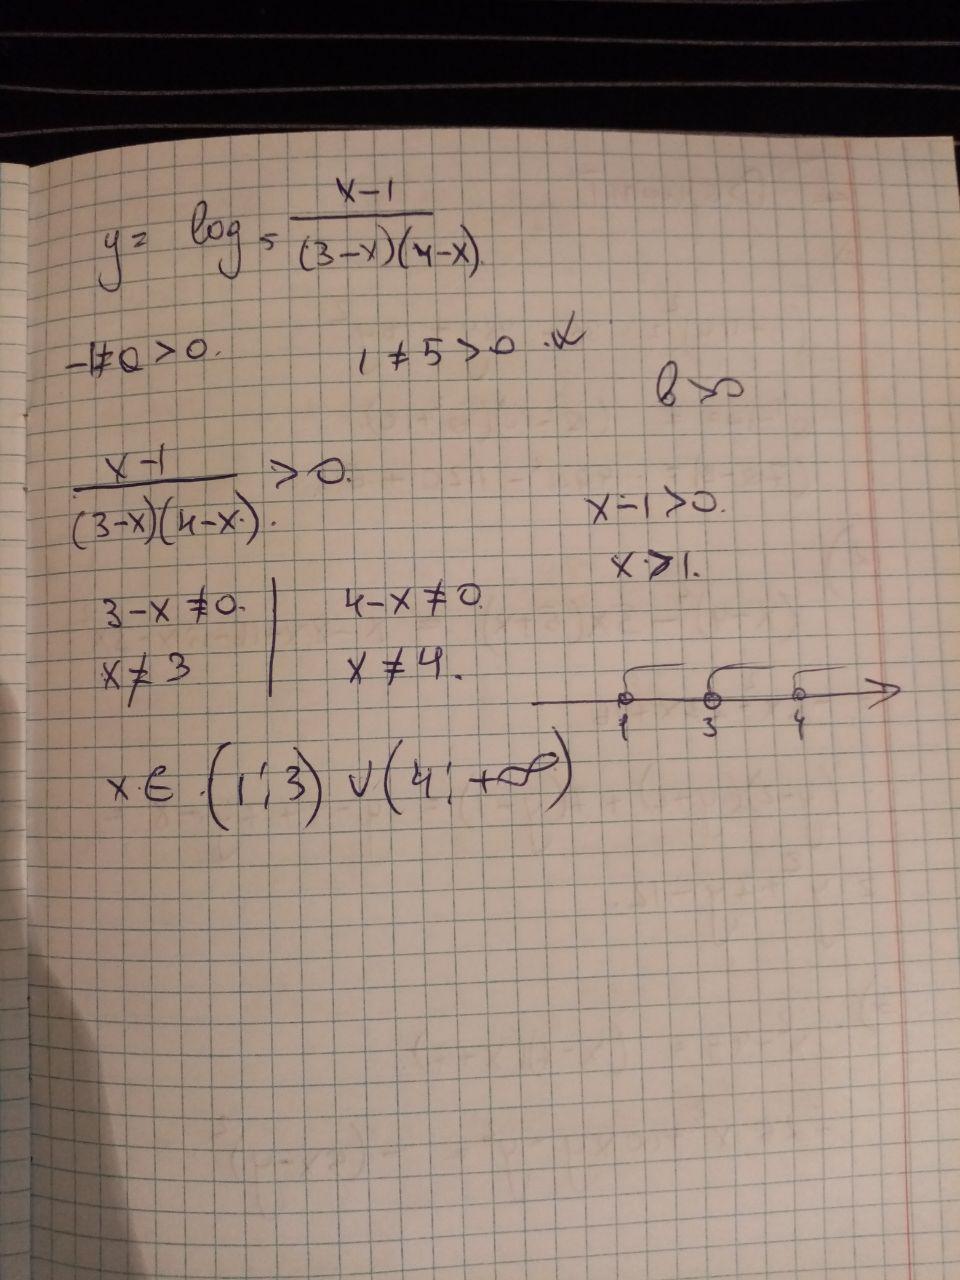 y = log₅ (x-1)/((3-x)(4-x))
-1≠0>0. 1 ≠ 5 > 0
b>0
(x-1)/((3-x)(4-x)) > 0.
x-1>0.
x>1.
3-x ≠0. | 4-x ≠0.
x≠3 | x ≠ 4.
1 3 4
x ∈ (1;3) ∪ (4; +∞)